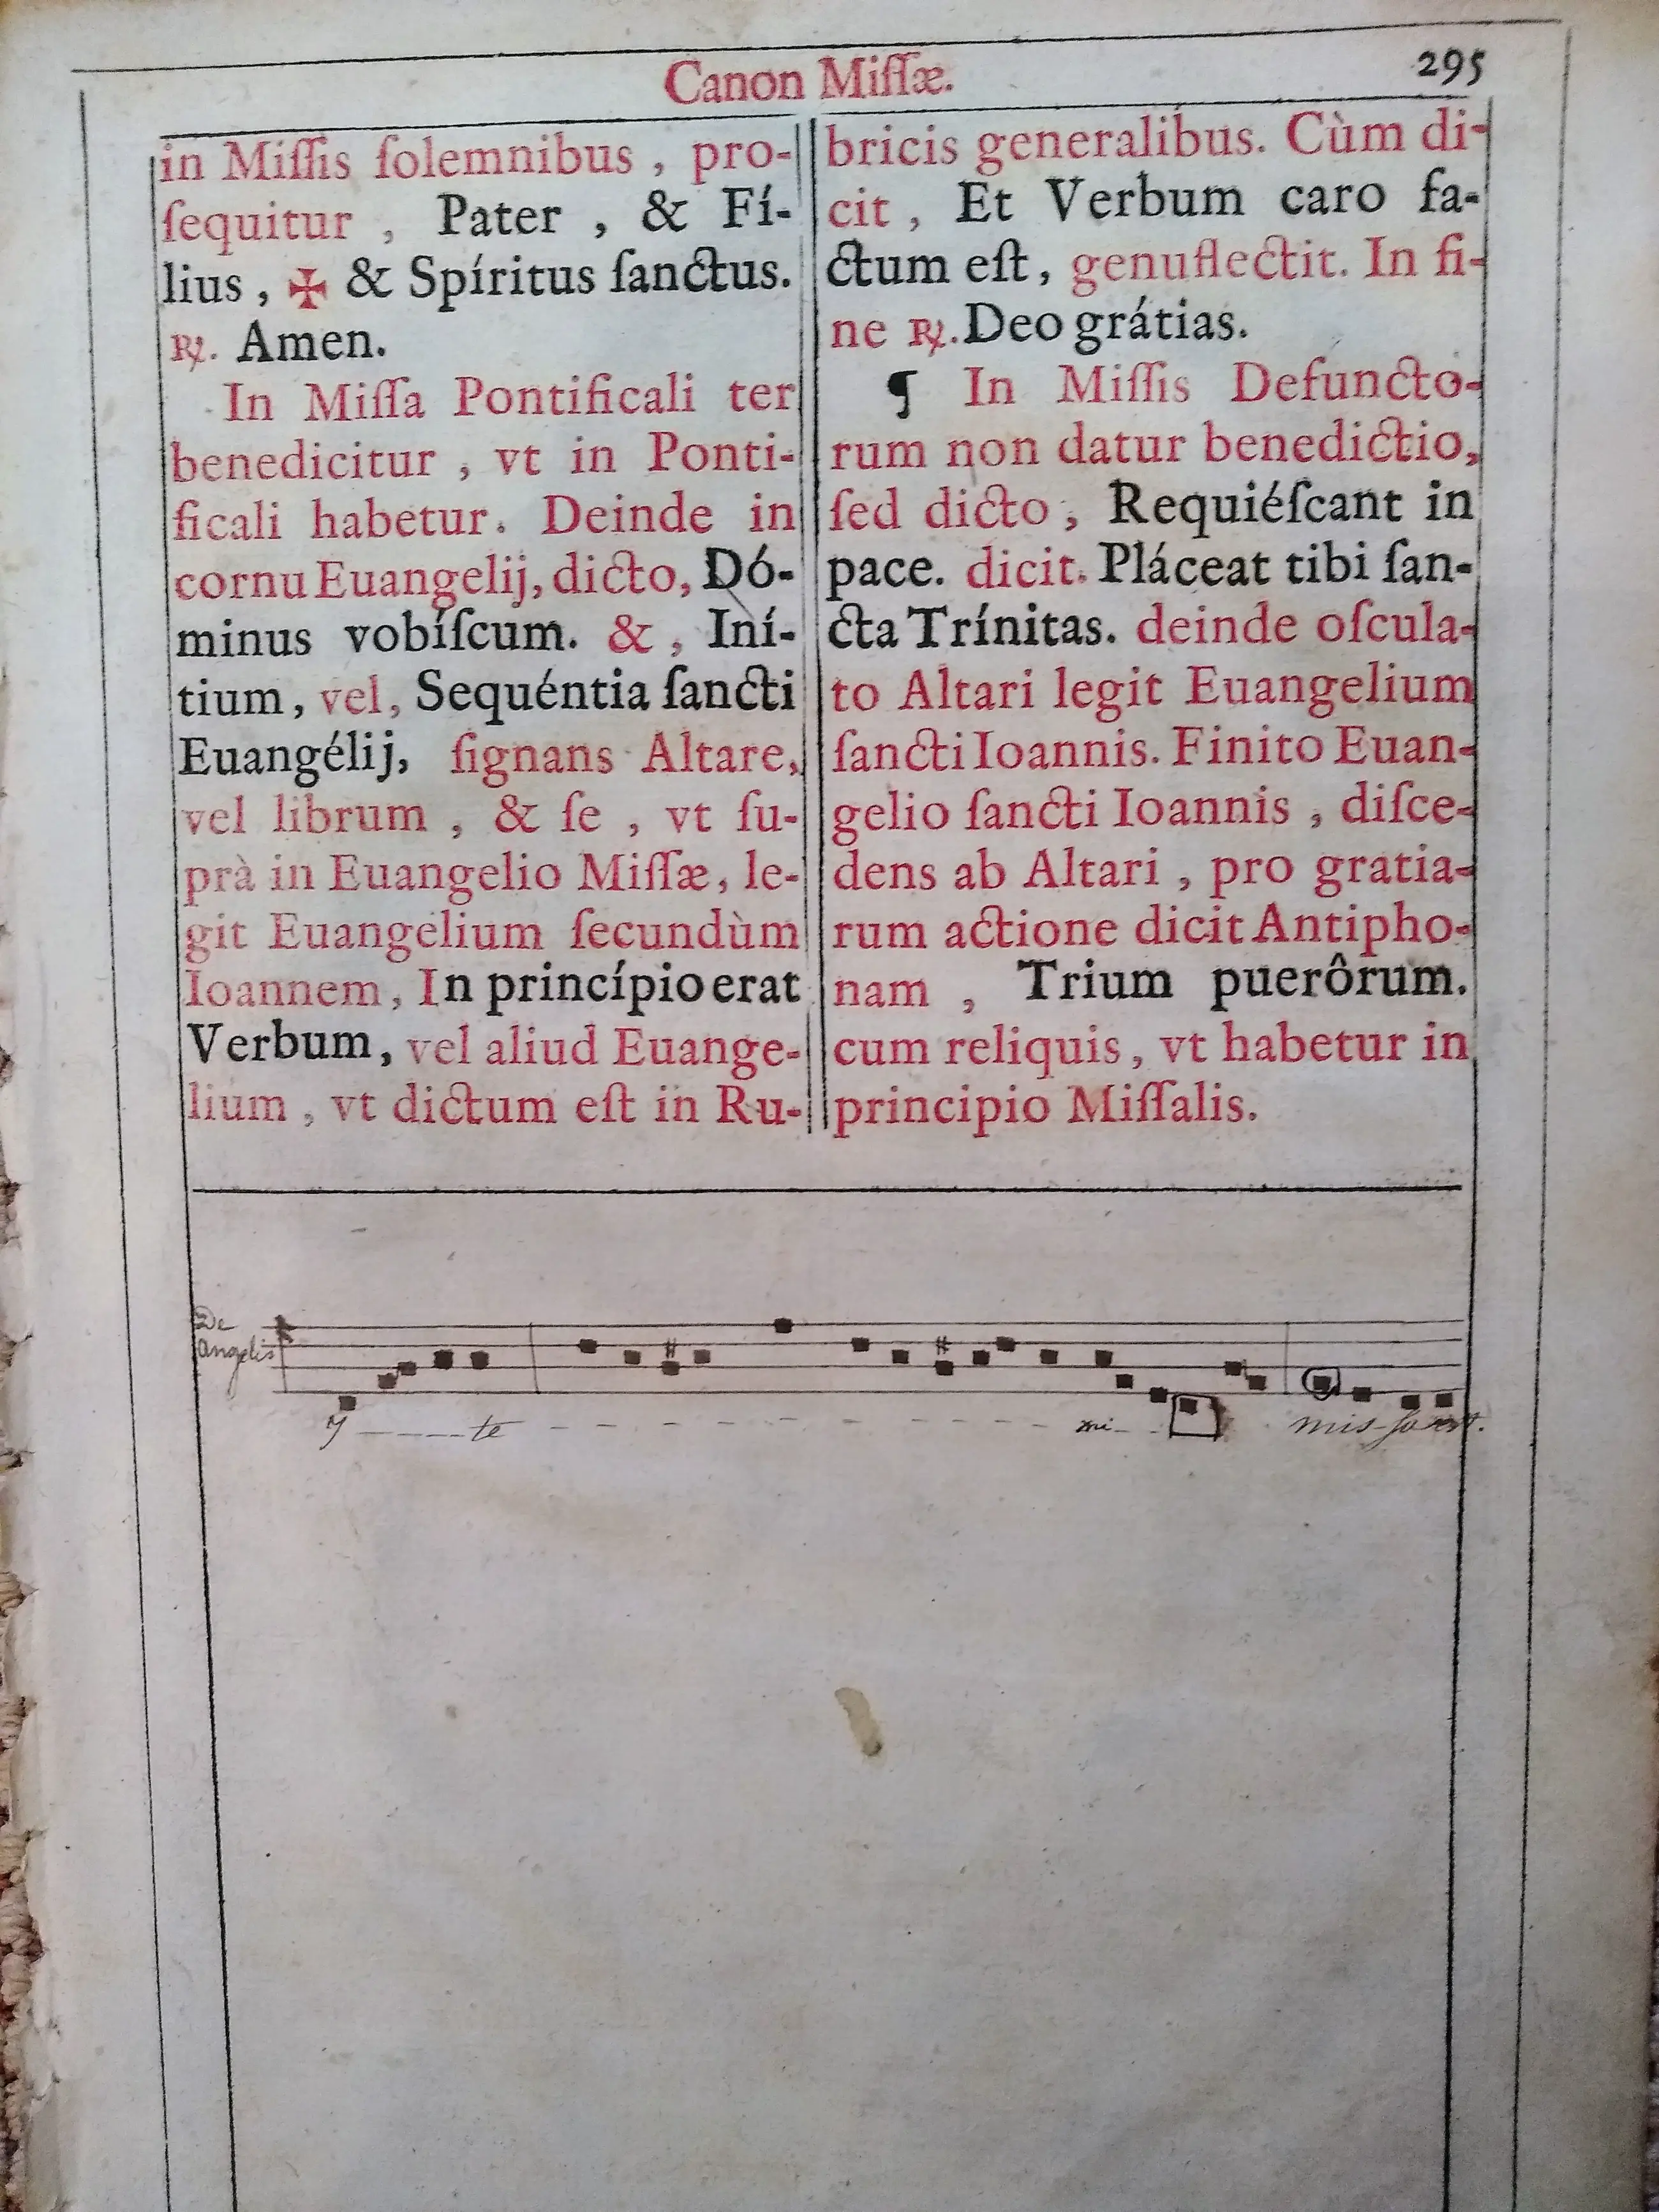 Canon Miſſæ.
295
in Miſſis ſolemnibus , pro-
ſequitur , Pater , & Fí-
lius , ✠ & Spíritus ſanctus.
℟. Amen.
In Miſſa Pontificali ter
benedicitur , vt in Ponti-
ficali habetur. Deinde in
cornu Euangelij, dicto, Dó-
minus vobíſcum. & , Iní-
tium, vel, Sequéntia ſancti
Euangélij, ſignans Altare,
vel librum , & ſe , vt ſu-
prà in Euangelio Miſſæ, le-
git Euangelium ſecundùm
Ioannem, In princípio erat
Verbum, vel aliud Euange-
lium , vt dictum eſt in Ru-
bricis generalibus. Cùm di-
cit , Et Verbum caro fa-
ctum eſt, genuflectit. In fi-
ne ℟. Deo grátias.
¶ In Miſſis Defuncto-
rum non datur benedictio,
ſed dicto , Requiéſcant in
pace. dicit. Pláceat tibi ſan-
cta Trínitas. deinde oſcula-
to Altari legit Euangelium
ſancti Ioannis. Finito Euan-
gelio ſancti Ioannis , diſce-
dens ab Altari , pro gratia-
rum actione dicit Antipho-
nam , Trium puerôrum.
cum reliquis, vt habetur in
principio Miſſalis.
De
Angelis
te mi- mis-sa est.